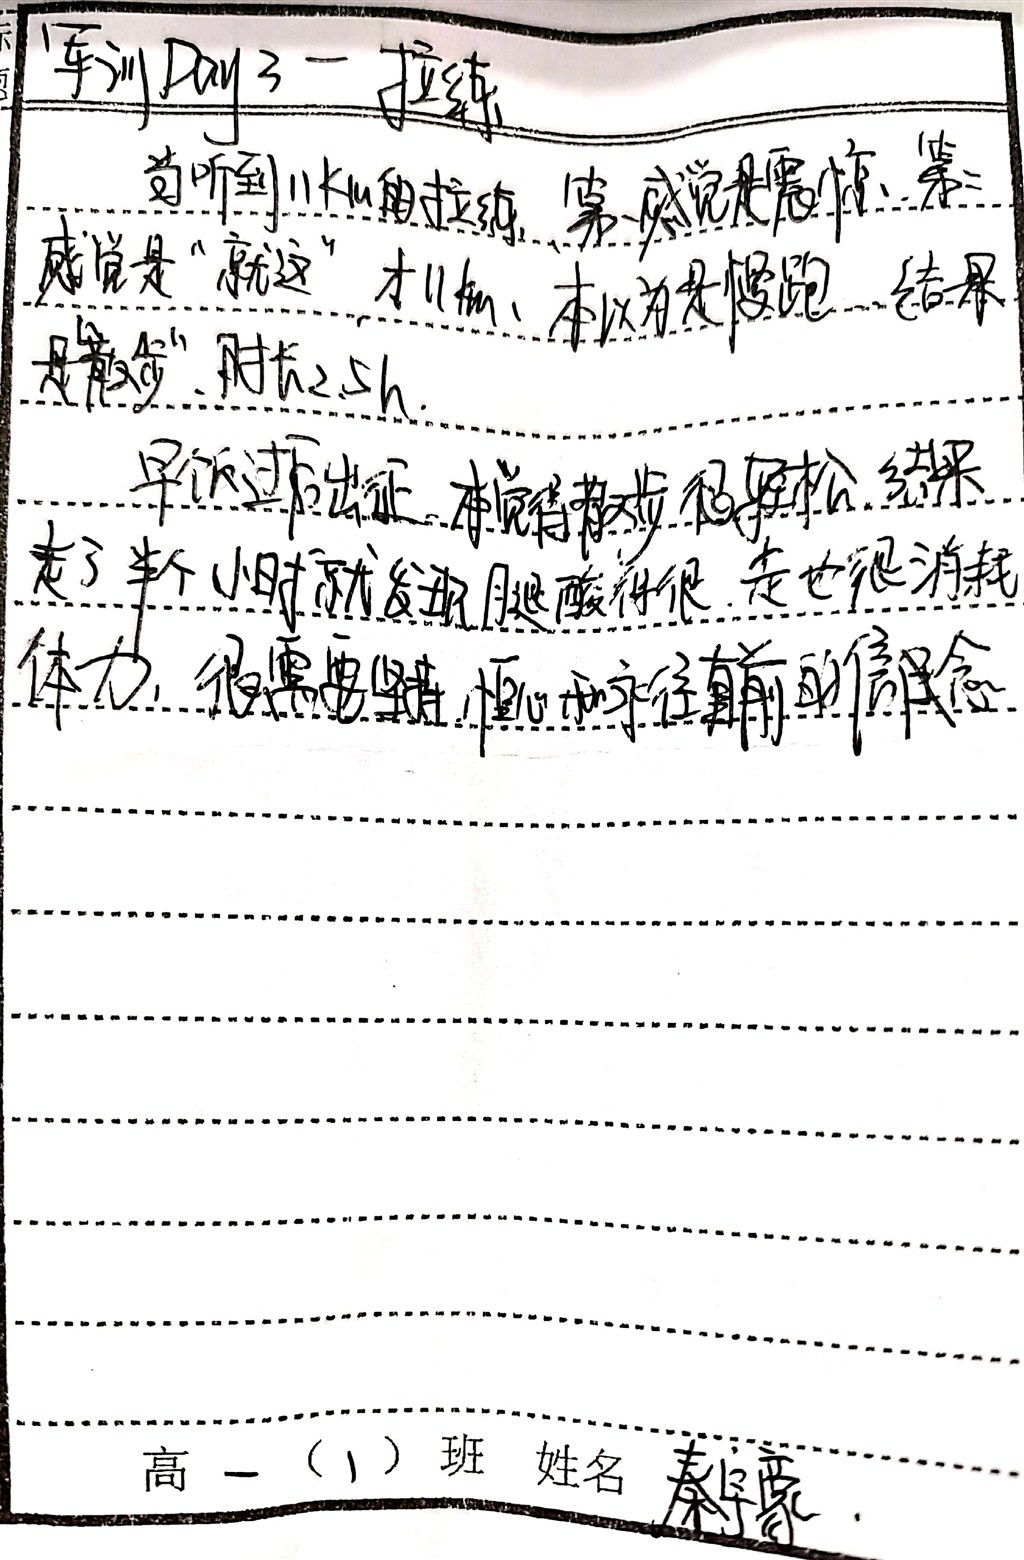 标题
军训Day3一拉练
当听到11Km的拉练、第一感觉是震惊、第二
感觉是“就这”才11km、本以为是慢跑 结果
是“散步”、时长2.5h.
早饭过后出征、本觉得散步很轻松、结果
走了半个小时就发现腿酸得很、走也很消耗
体力、很需要坚持、恒心和永往直前的信念
高一(1)班 姓名 秦宇豪.